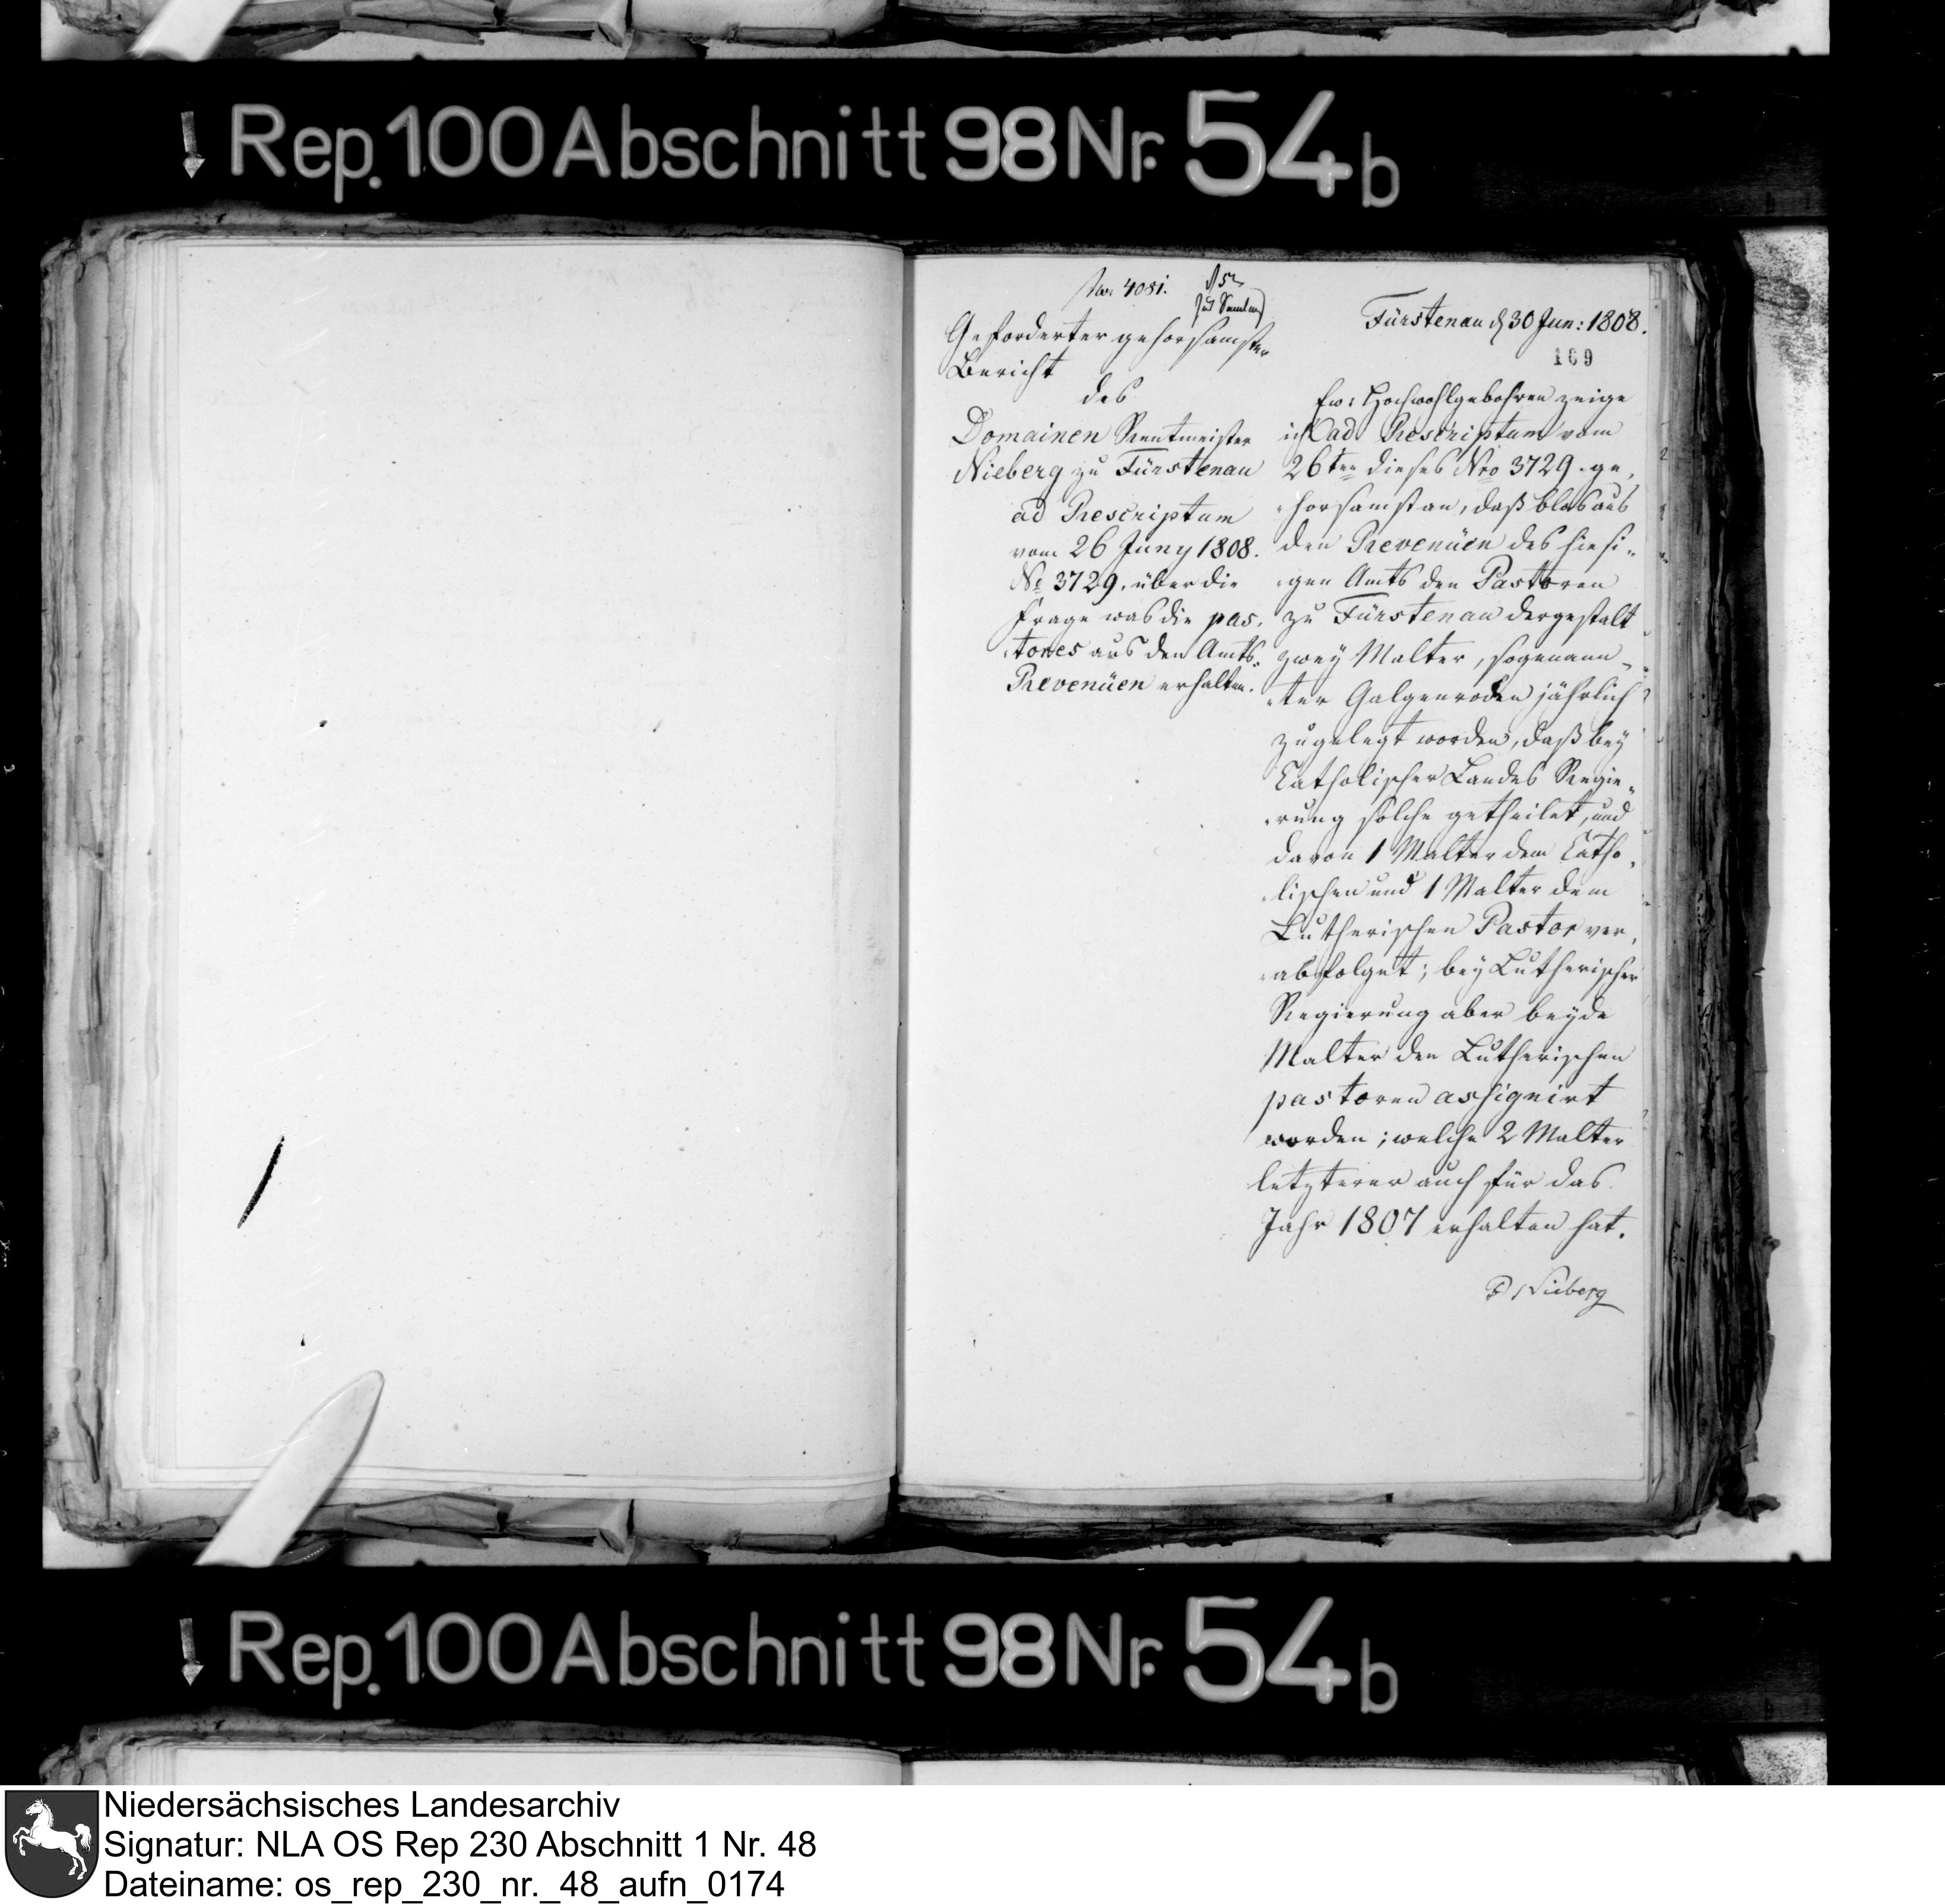 Rep. 100 Abschnitt 98 Nr. 54b
No. 4081.
Geforderter gehorsamster
Bericht
des
Domainen Rentmeister
Nieberg zu Fürstenau
ad Rescriptum
vom 26 Juny 1808.
No 3729. über die
Frage was die pas,
tores aus den Amts,
Revenüen erhalten.
Fürstenau d 30 Jun: 1808.
169
Ew: Hochwohlgebohren zeige
ich ad Rescriptum vom
26ten dieses Nro 3729. ge,
horsamst an, daß blos aus
den Revenüen des hiesi„
gen Amts den Pastoren
zu Fürstenau dergestalt
zwey Malter, sogenann„
ter Galgenroden jährlich
zugelegt worden, daß bey
Catholischer Landes Regie„
rung solche getheilet, und
davon 1 Malter dem Catho,
lischen und 1 Malter dem
Lutherischen Pastor ver,
abfolget; bey Lutherischer
Regierung aber beyde
Malter den Lutherischen
pastoren assignirt
worden; welche 2 Malter
letzterer auch für das
Jahr 1807 erhalten hat.
Nieberg
Rep. 100 Abschnitt 98 Nr. 54b
Niedersächsisches Landesarchiv
Signatur: NLA OS Rep 230 Abschnitt 1 Nr. 48
Dateiname: os_rep_230_nr._48_aufn_0174